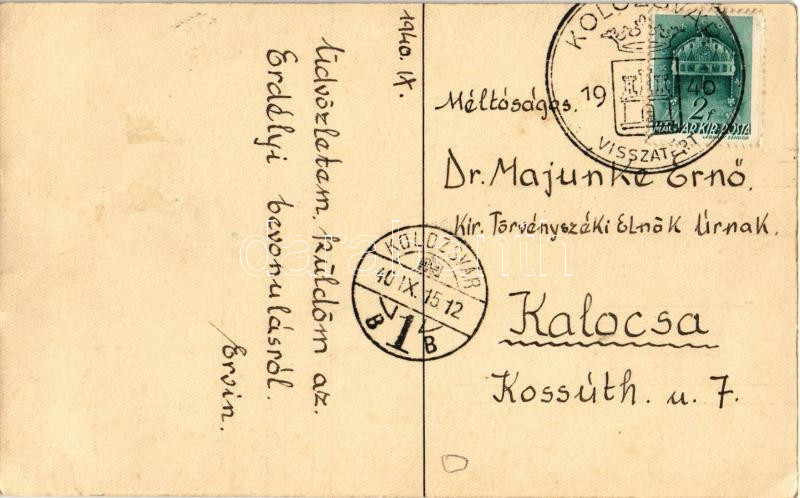 1940. IX.
Üdvözletem. küldöm az.
Erdélyi bevonulásról.
Ervin.
KOLOZSVÁR
1940
VISSZATÉRT
2f
MAGYAR KIR. POSTA
Méltóságos.
Dr. Majunke Ernő.
Kir. Törvényszéki Elnök Úrnak.
Kalocsa
Kossúth. u. 7.
KOLOZSVÁR
40 IX. 15. 12
B 1 B
darabanth